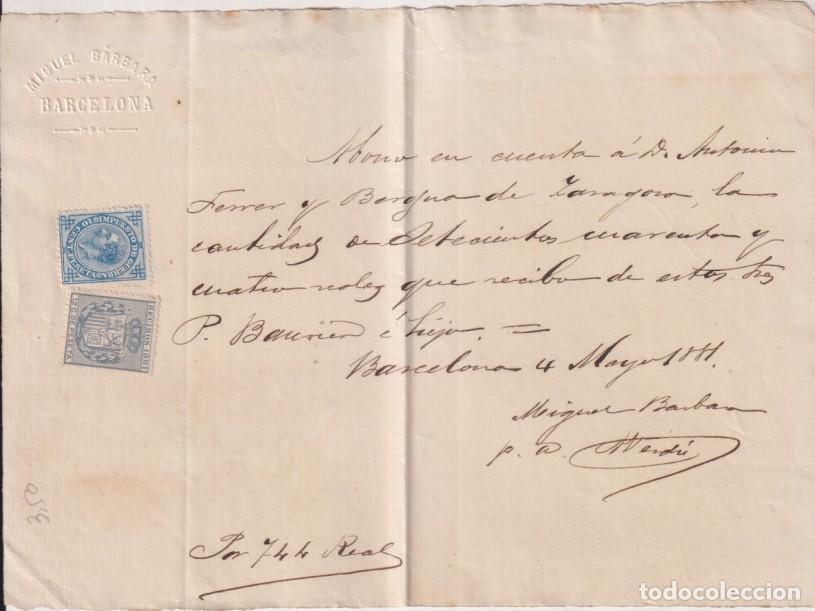 MIGUEL BÀRBARA
BARCELONA
Abono en cuenta á D. Antonio
Ferrer y Bergua de Zaragoza, la
cantidad de Setecientos cuarenta y
cuatro reales que recibo de estos Sres
P. Baurier é hijo. =
Barcelona 4 Mayo 1881.
Miguel Barbara
p. a.
Por 744 Real
IMPUESTO DE GUERRA
10 CENT. PESETA
RECIBOS 1881
3,50
todocoleccion